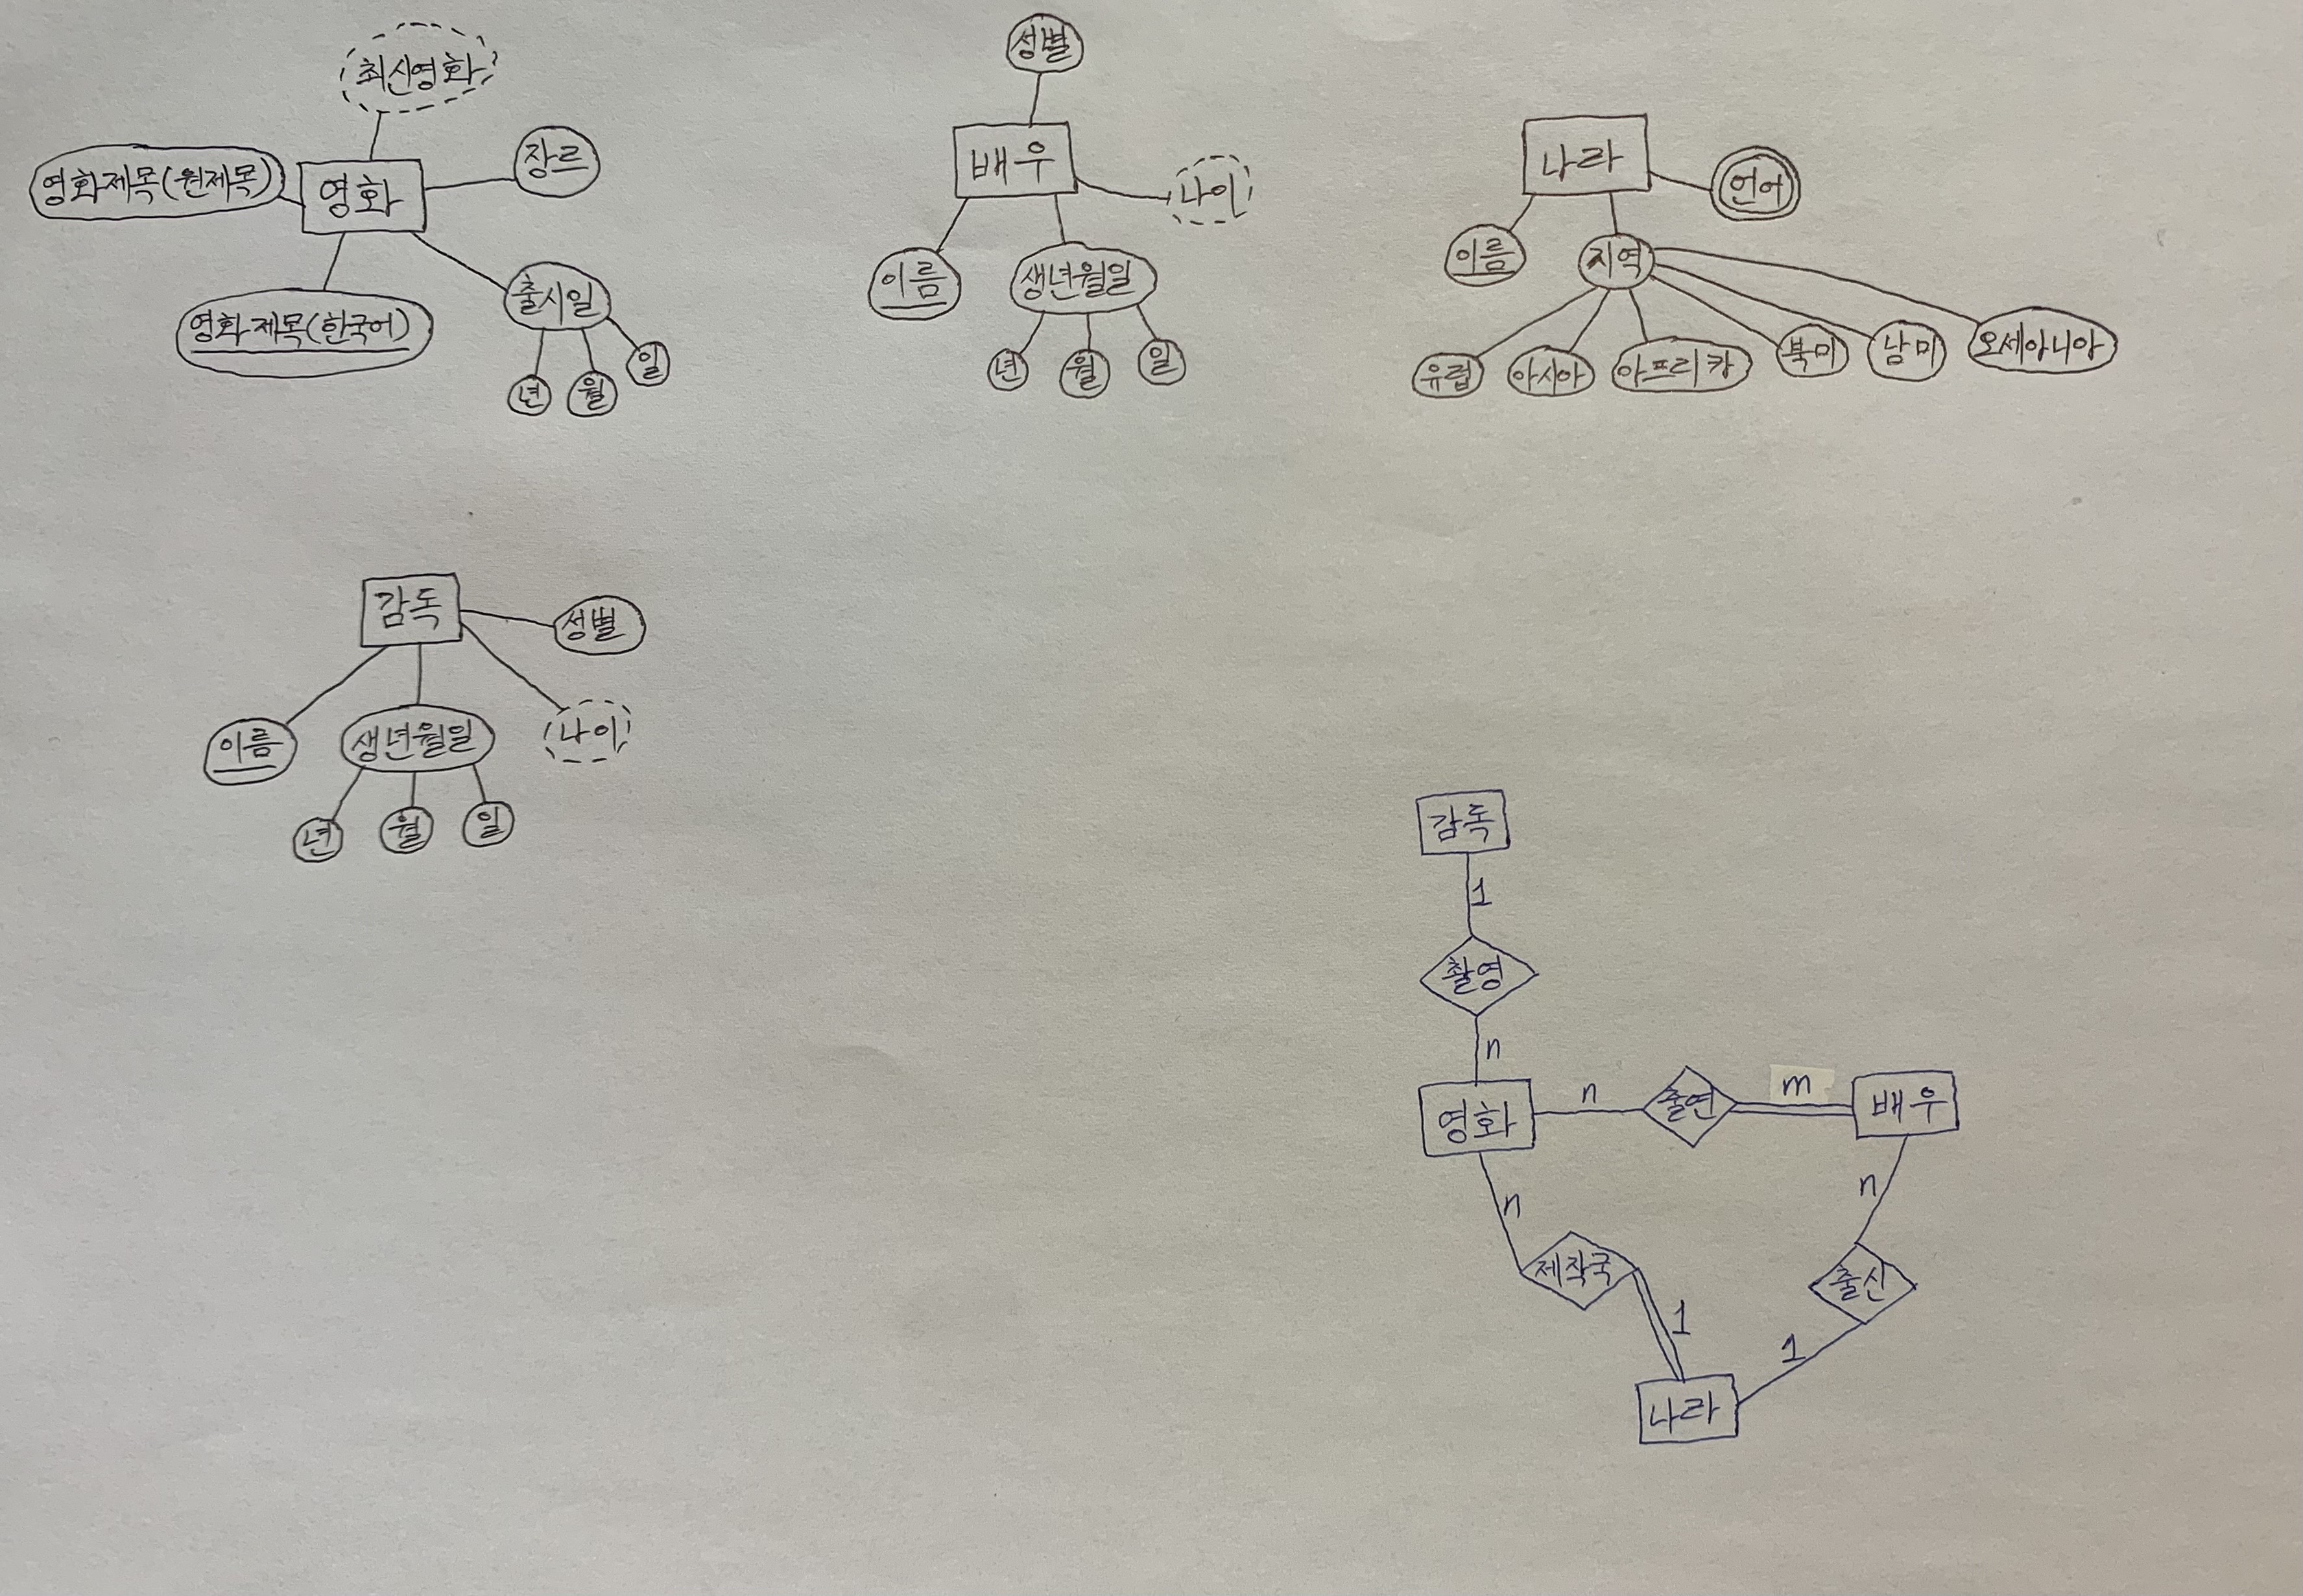 최신영화
영화제목(원제목)
영화
장르
영화제목(한국어)
출시일
년
월
일
성별
배우
나이
이름
생년월일
년
월
일
나라
언어
이름
지역
유럽
아시아
아프리카
북미
남미
오세아니아
감독
성별
이름
생년월일
나이
년
월
일
감독
1
촬영
n
영화
n
출연
m
배우
n
제작국
1
n
출신
1
나라